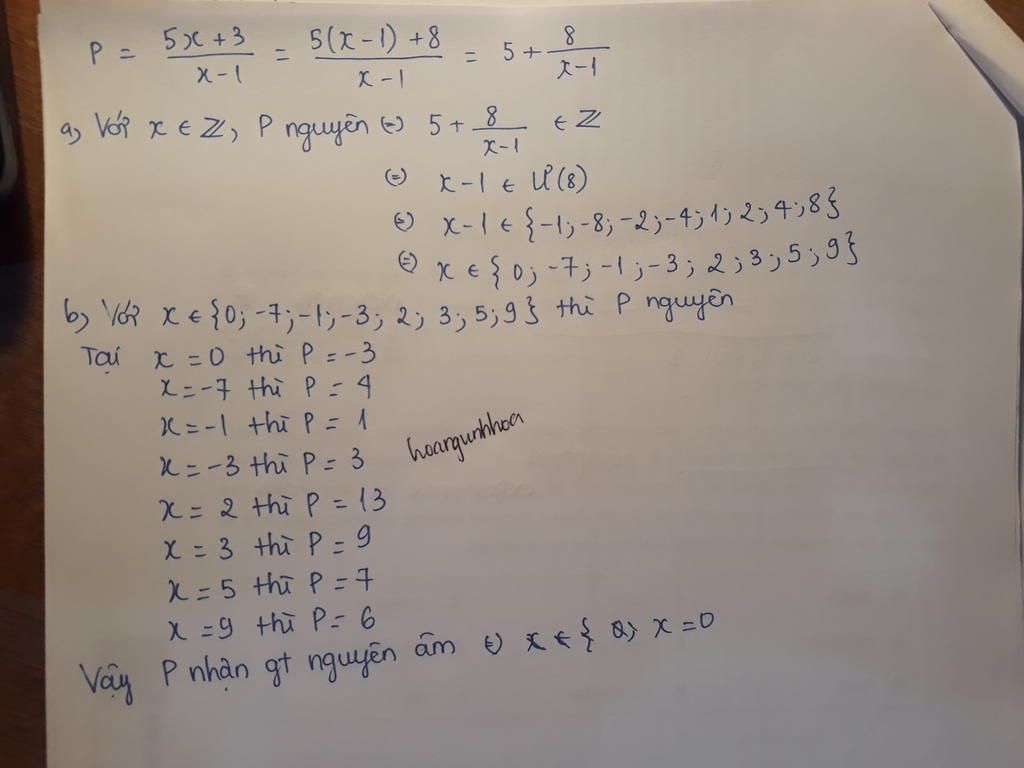 P = (5x+3)/(x-1) = (5(x-1)+8)/(x-1) = 5 + 8/(x-1)
a, Với x ∈ ℤ, P nguyên (=) 5 + 8/(x-1) ∈ ℤ
(=) x-1 ∈ Ư(8)
(=) x-1 ∈ {-1; -8; -2; -4; 1; 2; 4; 8}
(=) x ∈ {0; -7; -1; -3; 2; 3; 5; 9}
b, Với x ∈ {0; -7; -1; -3; 2; 3; 5; 9} thì P nguyên
Tại x = 0 thì P = -3
x = -7 thì P = 4
x = -1 thì P = 1
hoangunhhoa
x = -3 thì P = 3
x = 2 thì P = 13
x = 3 thì P = 9
x = 5 thì P = 7
x = 9 thì P = 6
Vậy P nhận gt nguyên âm (=) x = 0